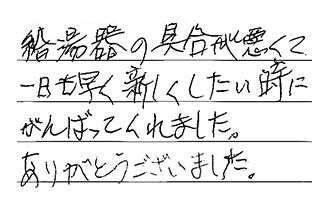 給湯器の具合が悪くて
一日も早く新しくしたい時に
がんばってくれました。
ありがとうございました。